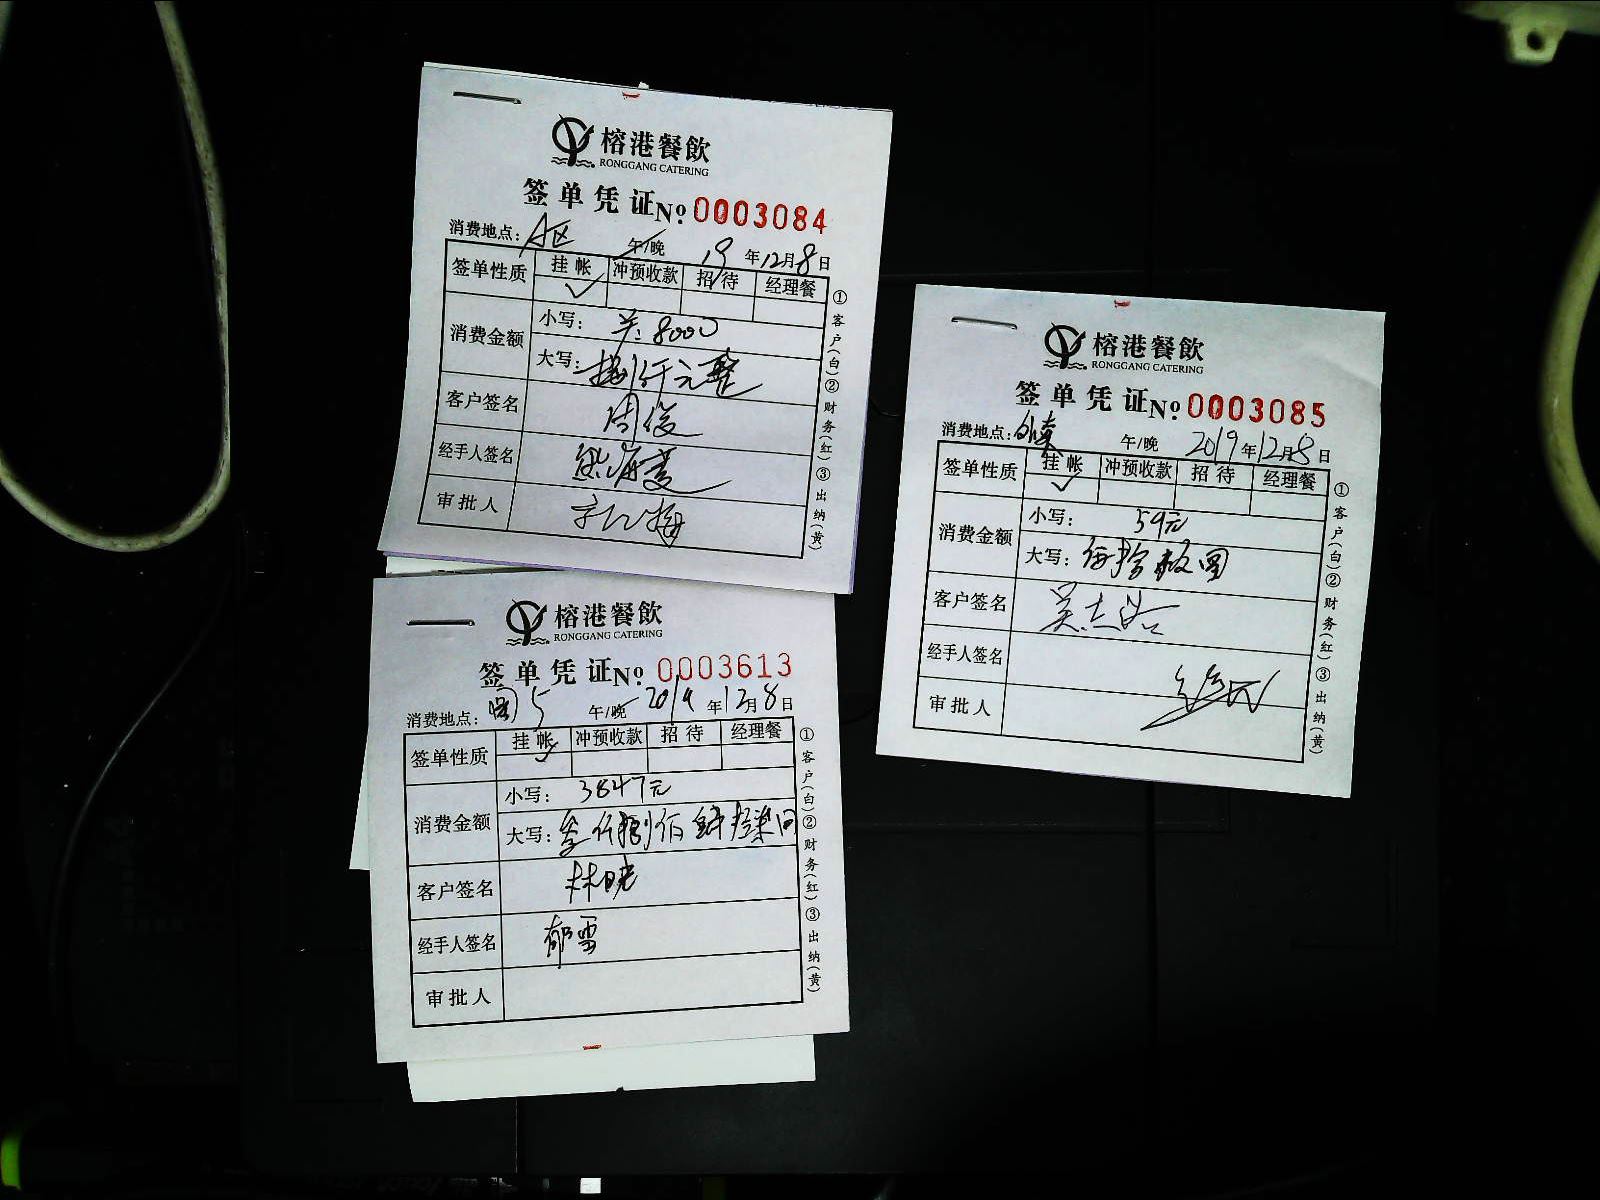 榕港餐飲
RONGGANG CATERING
签单凭证 No. 0003084
消费地点: A区 午/晚 19年12月8日
签单性质 挂帐 冲预收款 招待 经理餐
✓
消费金额 小写: 8000
大写: 捌仟元整
客户签名 周俊
经手人签名
审批人
①客户(白)②财务(红)③出纳(黄)
榕港餐飲
RONGGANG CATERING
签单凭证 No. 0003085
消费地点: 午/晚 2019年12月8日
签单性质 挂帐 冲预收款 招待 经理餐
✓
消费金额 小写: 59元
大写: 伍拾
客户签名 吴志浩
经手人签名
审批人
①客户(白)②财务(红)③出纳(黄)
榕港餐飲
RONGGANG CATERING
签单凭证 No. 0003613
消费地点: 5 午/晚 2019年12月8日
签单性质 挂帐 冲预收款 招待 经理餐
✓
消费金额 小写: 3847元
大写: 叁仟捌佰肆拾柒
客户签名 林晓
经手人签名 郁雪
审批人
①客户(白)②财务(红)③出纳(黄)